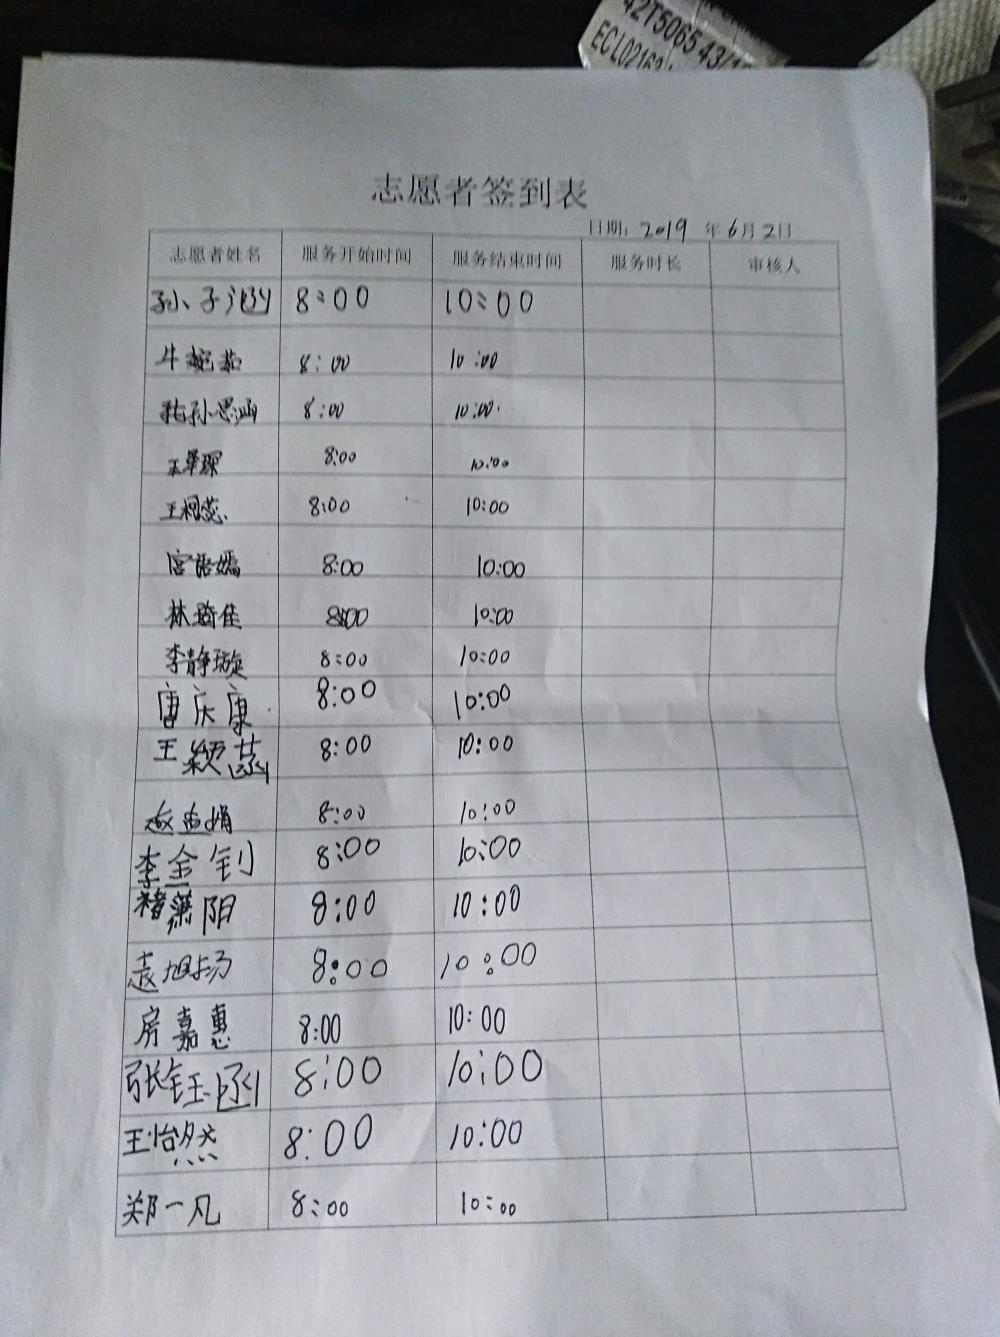 42T5065 43/1
ECL02163
志愿者签到表
日期: 2019 年 6月 2日
志愿者姓名 服务开始时间 服务结束时间 服务时长 审核人
孙子涵 8:00 10:00
牛婉茹 8:00 10:00
孙思涵 8:00 10:00
王翠琛 8:00 10:00
王柯蕊 8:00 10:00
宫语嫣 8:00 10:00
林琦佳 8:00 10:00
李静璇 8:00 10:00
唐庆康 8:00 10:00
王颖菡 8:00 10:00
8:00 10:00
李金钊 8:00 10:00
阳 8:00 10:00
袁旭扬 8:00 10:00
房嘉惠 8:00 10:00
张钰函 8:00 10:00
王怡然 8:00 10:00
郑一凡 8:00 10:00